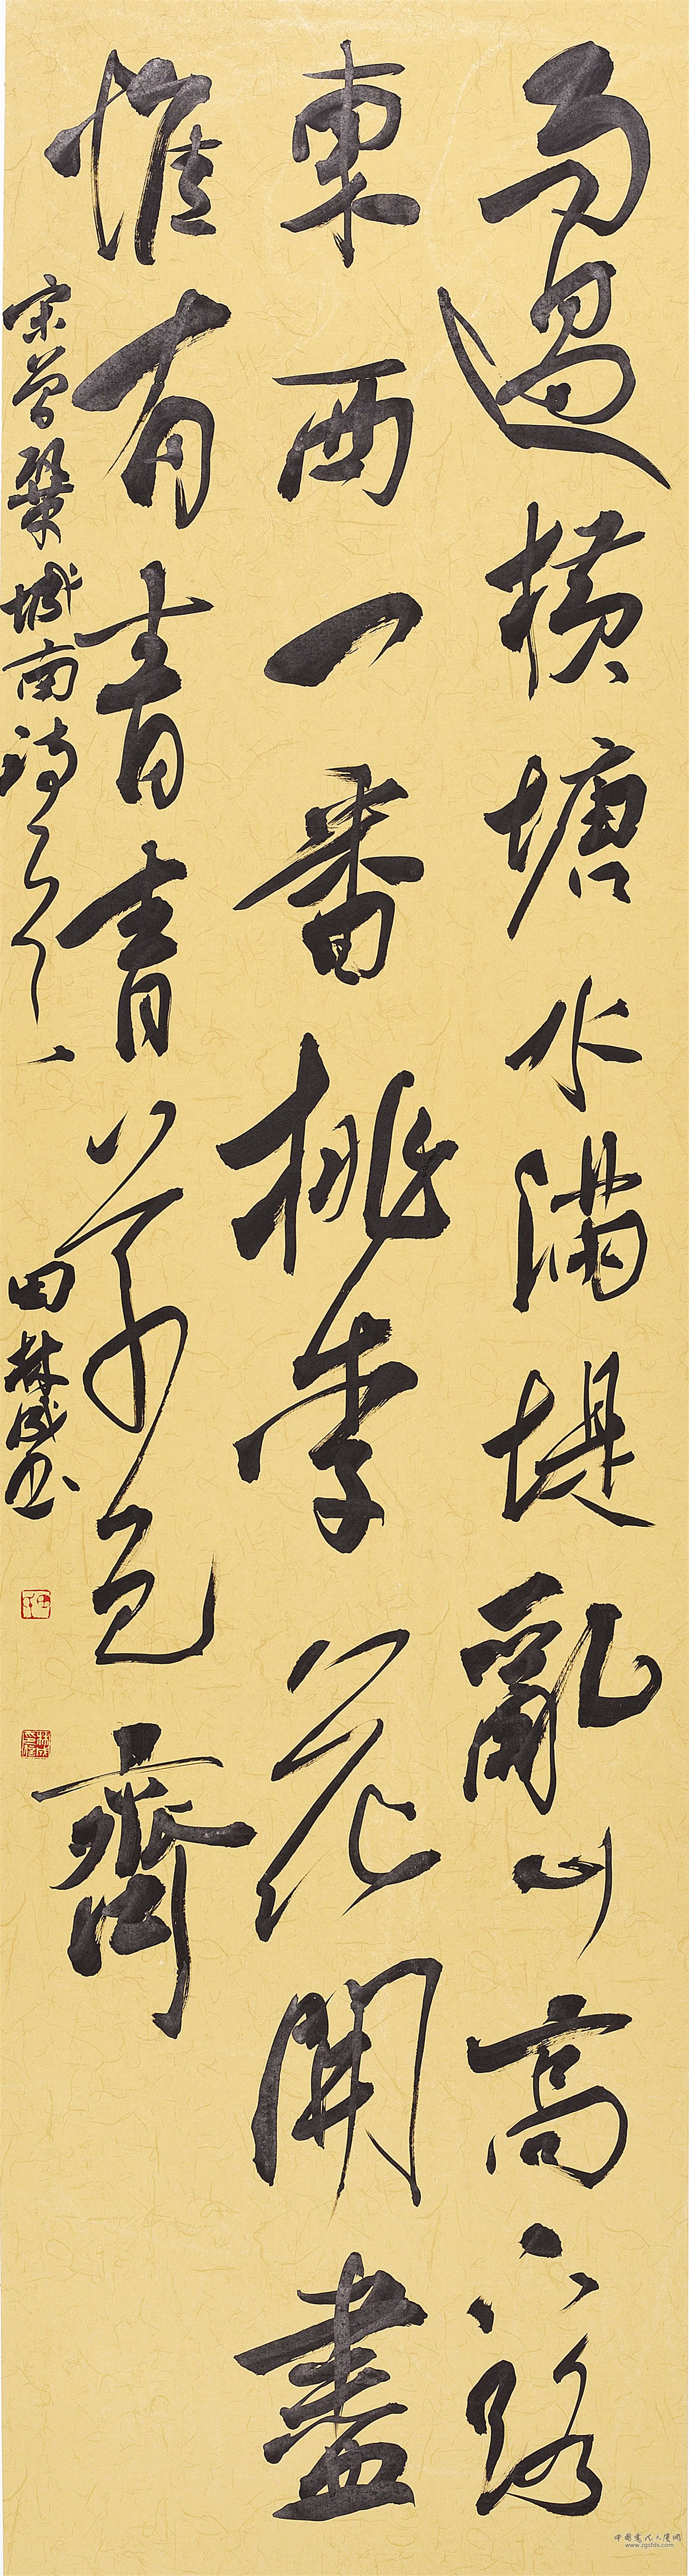 雨過橫塘水滿堤亂山高下路
東西一番桃李花開盡
惟有青青草色齊
宋曾鞏城南詩之一
田林成书
www.zgsfds.com